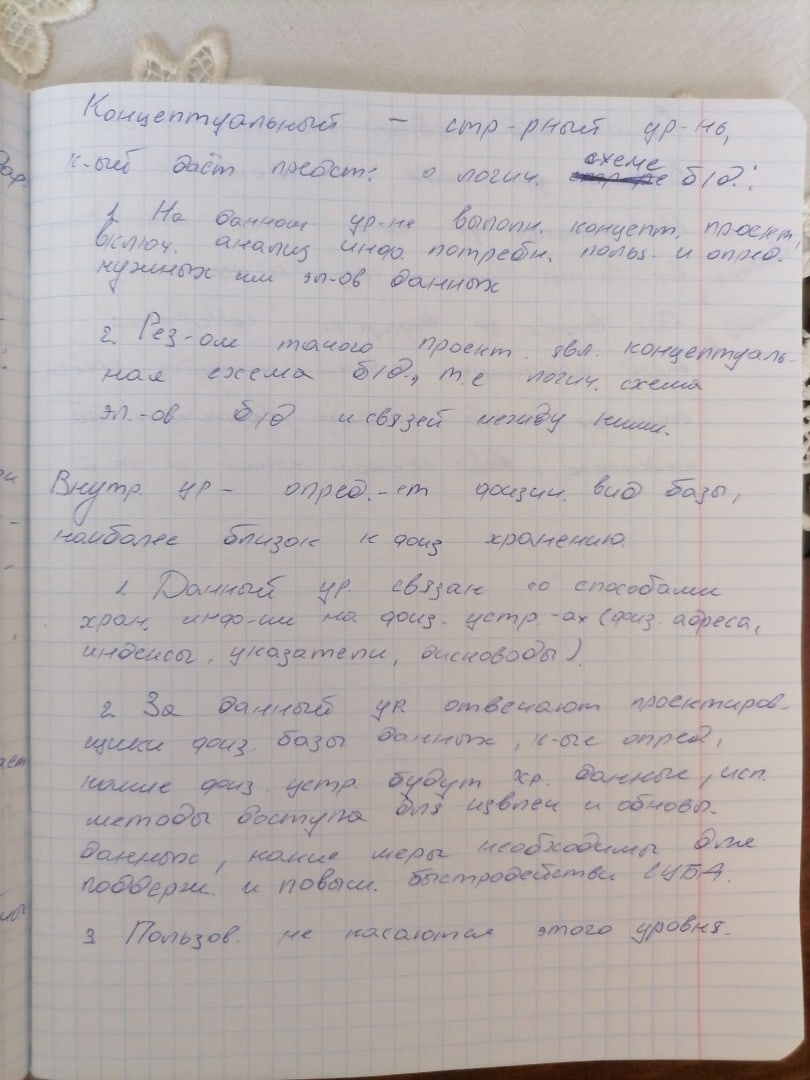 Концептуальный – стр-рный ур-нь,
к-ый даёт предст. о логич. схеме б/д:
1. На данном ур-не выполн. концепт. проект,
включ. анализ инфо потребн. польз. и опред.
нужных им эл-ов данных
2. Рез-ом такого проект. явл. концептуаль-
ная схема б/д, т.е логич. схема
эл.-ов б/д и связей между ними.
Внутр. ур – опред.-ет физич. вид базы,
наиболее близок к физ хранению.
1. Данный ур. связан со способами
хран. инфо-ии на физ. устр.-ах (физ. адреса,
индексы, указатели, дисководы).
2. За данный ур отвечают проектиров-
щики физ. базы данных, к-ые опред,
какие физ. устр. будут хр. данные, исп.
методы доступа для извлеч и обновл.
данных, какие меры необходимы для
поддерж. и повыш. быстродействи СУБД.
3 Пользов. не касаются этого уровня.